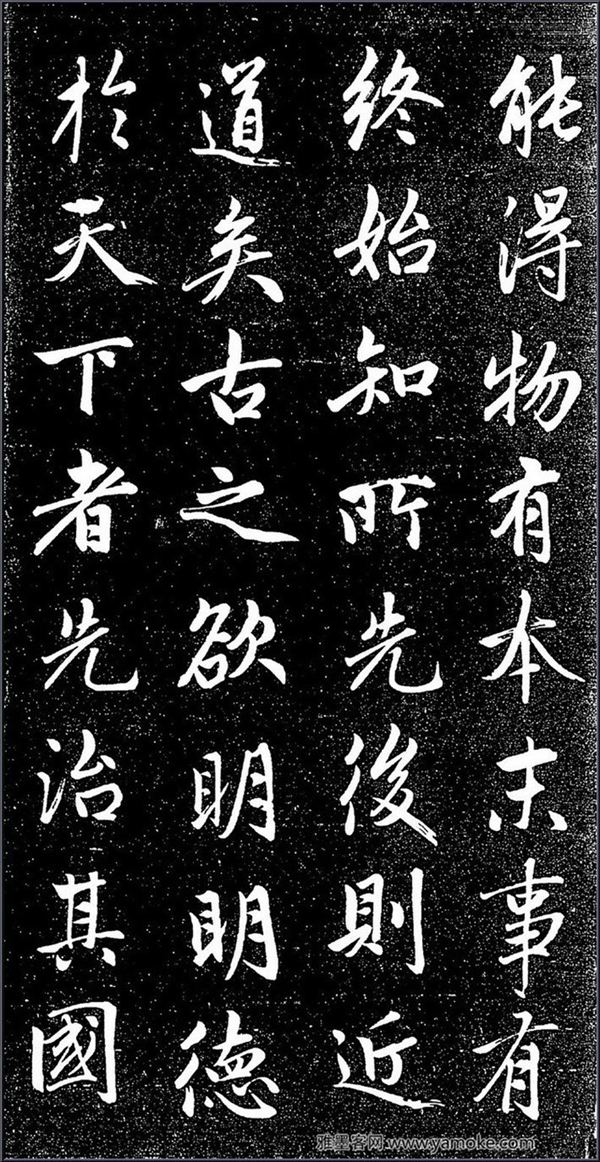 能得物有本末事有
終始知所先後則近
道矣古之欲明明德
於天下者先治其國
雅墨客网 www.yamoke.com